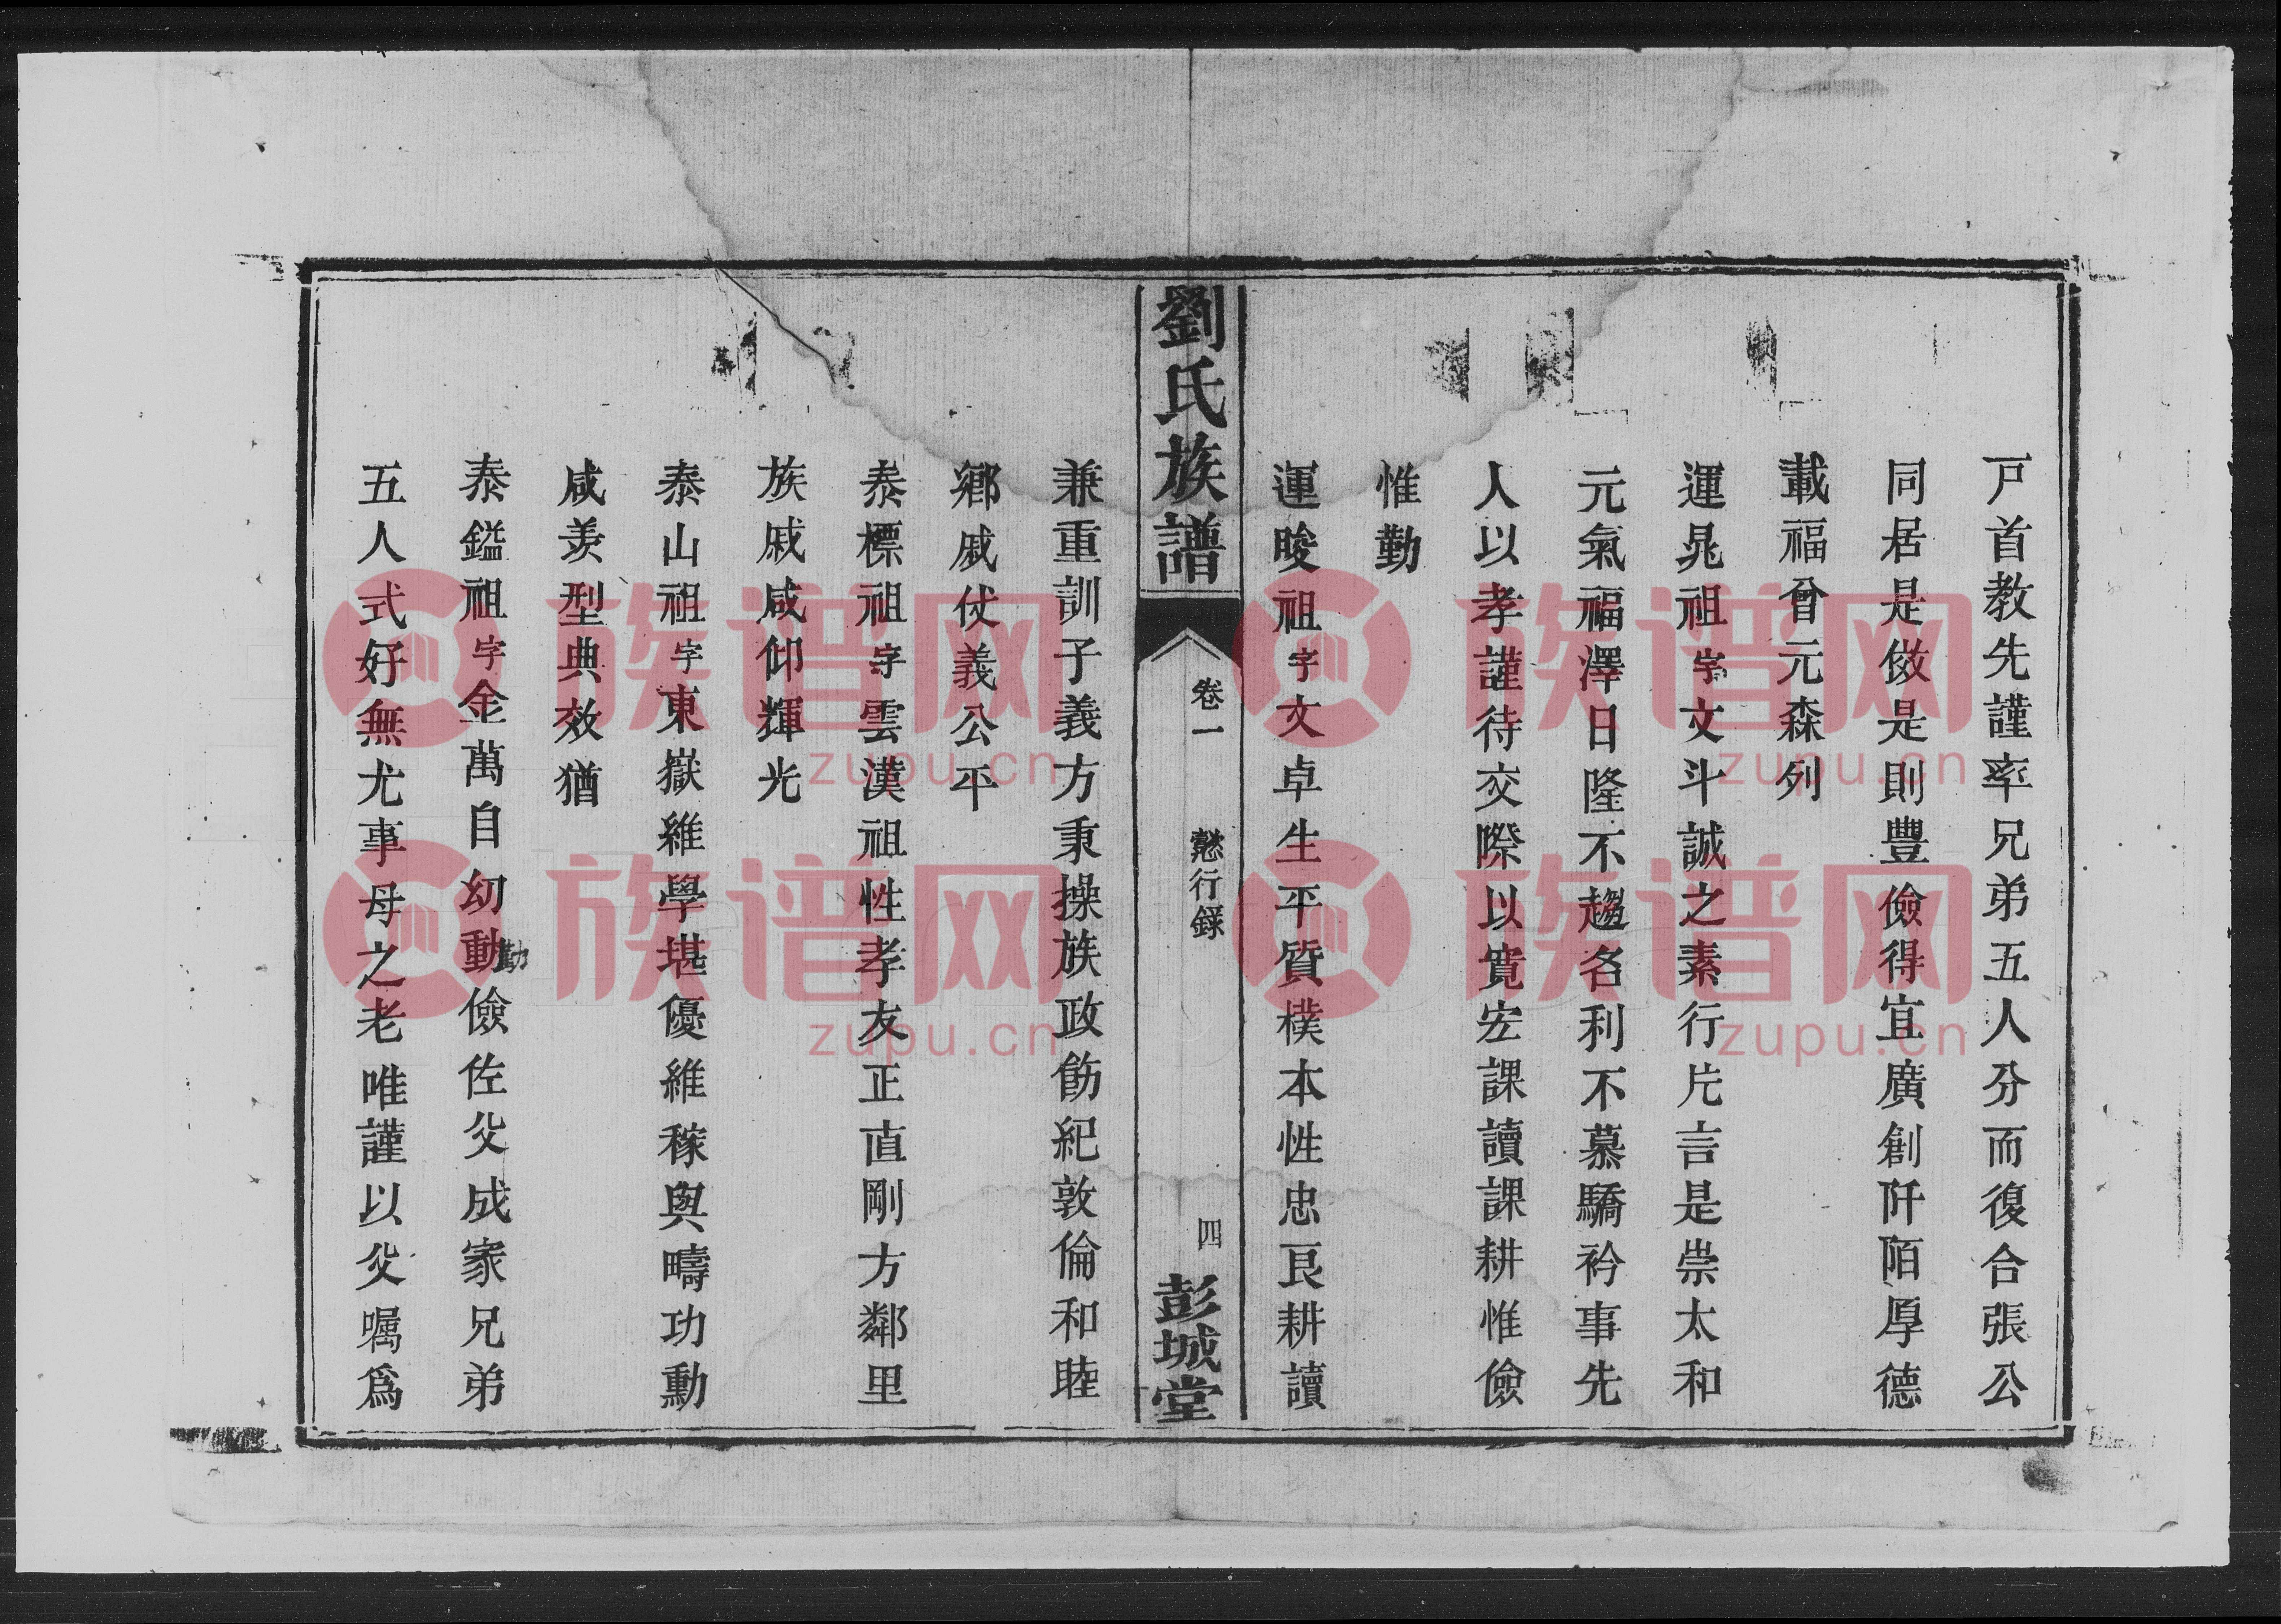 戸首教先謹率兄弟五人分而復合張公
同居是傚是則豐儉得宜廣創阡陌厚德
載福曾元森列
運晃祖字文斗誠之素行片言是崇太和
元氣福澤日隆不趨名利不慕驕矜事先
人以孝謹待交際以寬宏課讀課耕惟儉
惟勤
運晙祖字文卓生平質樸本性忠良耕讀
劉氏族譜
卷一
懿行錄
四
彭城堂
兼重訓子義方秉操族政飭紀敦倫和睦
鄉戚仗義公平
泰標祖字雲漢祖性孝友正直剛方鄰里
族戚咸仰輝光
泰山祖字東嶽維學堪優維稼與疇功勳
咸羨型典效猶
泰鎰祖字金萬自幼動勤儉佐父成家兄弟
五人式好無尤事母之老唯謹以父囑爲
族谱网
zupu.cn
族谱网
zupu.cn
族谱网
zupu.cn
族谱网
zupu.cn